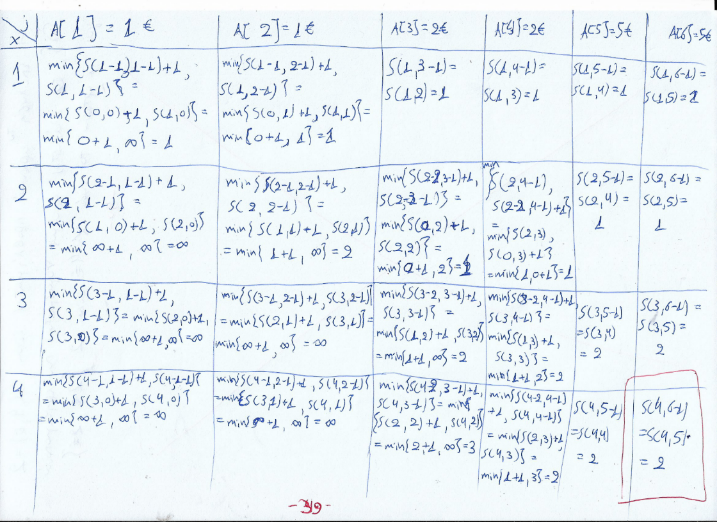 j
x
A[1]=1€
A[2]=1€
A[3]=2€
A[4]=2€
A[5]=5€
A[6]=5€
1
min{S(1-1,1-1)+1,
S(1,1-1)} =
min{S(0,0)+1, S(1,0)}=
min{0+1, ∞}=1
min{S(1-1,2-1)+1,
S(1,2-1)} =
min{S(0,1)+1, S(1,1)}=
min{0+1, 1}=1
S(1,3-1)=
S(1,2)=1
S(1,4-1)=
S(1,3)=1
S(1,5-1)=
S(1,4)=1
S(1,6-1)=
S(1,5)=1
2
min{S(2-1,1-1)+1,
S(2,1-1)}=
min{S(1,0)+1, S(2,0)}
=min{∞+1, ∞}=∞
min{S(2-1,2-1)+1,
S(2,2-1)}=
=min{S(1,1)+1, S(2,1)}
=min{1+1, ∞}=2
min{S(2-2,3-1)+1,
S(2,3-1)}=
min{S(0,2)+1,
S(2,2)}=
min{0+1,2}=1
min
{S(2,4-1),
S(2-2,4-1)+1}
=
min{S(2,3),
S(0,3)+1}
=min{1,0+1}=1
S(2,5-1)=
S(2,4)=
1
S(2,6-1)=
S(2,5)=
1
3
min{S(3-1,1-1)+1,
S(3,1-1)}=min{S(2,0)+1,
S(3,0)}=min{∞+1,∞}=∞
min{S(3-1,2-1)+1,S(3,2-1)}
=min{S(2,1)+1, S(3,1)}=
min{∞+1, ∞}=∞
min{S(3-2,3-1)+1,
S(3,3-1)}=
min{S(1,2)+1, S(3,2)}
=min{1+1,∞}=2
min{S(3-2,4-1)+1,
S(3,4-1)}=
min{S(1,3)+1,
S(3,3)}=
min{1+1,2}=2
S(3,5-1)
=S(3,4)
=2
S(3,6-1)=
S(3,5)=
2
4
min{S(4-1,1-1)+1,S(4,1-1)}
=min{S(3,0)+1, S(4,0)}
=min{∞+1, ∞}=∞
min{S(4-1,2-1)+1, S(4,2-1)}
=min{S(3,1)+1, S(4,1)}=
=min{∞+1, ∞}=∞
min{S(4-2,3-1)+1,
S(4,3-1)}=min
{S(2,2)+1, S(4,2)}
=min{2+1,∞}=3
min{S(4-2,4-1)
+1, S(4,4-1)}
=min{S(2,3)+1,
S(4,3)}=
min{1+1,3}=2
S(4,5-1)
=S(4,4)
=2
S(4,6-1)
=S(4,5)
=2